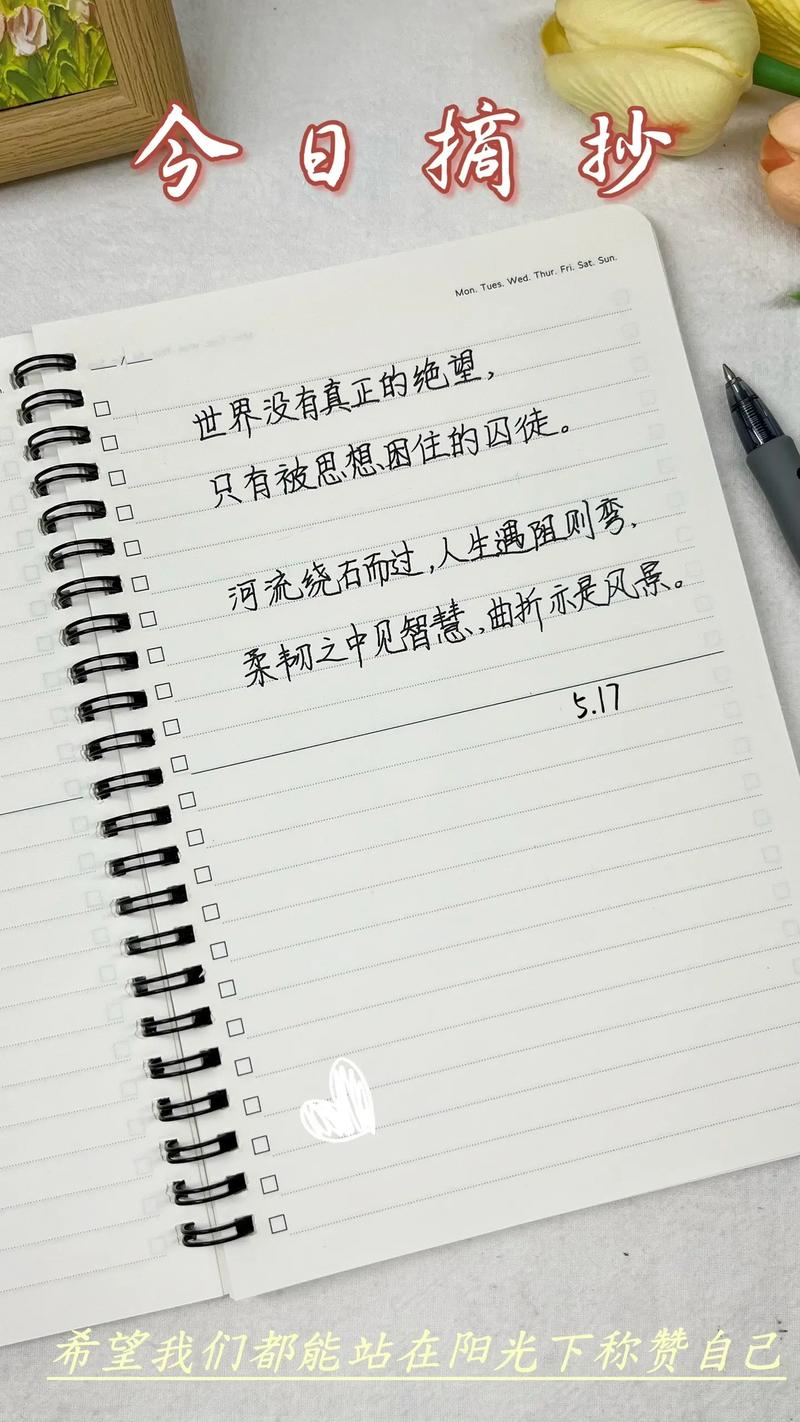 今日摘抄
Mon. Tues. Wed. Thur. Fri. Sat. Sun.
世界没有真正的绝望，
只有被思想困住的囚徒。
河流绕石而过，人生遇阻则弯，
柔韧之中见智慧，曲折亦是风景。
5.17
希望我们都能站在阳光下称赞自己